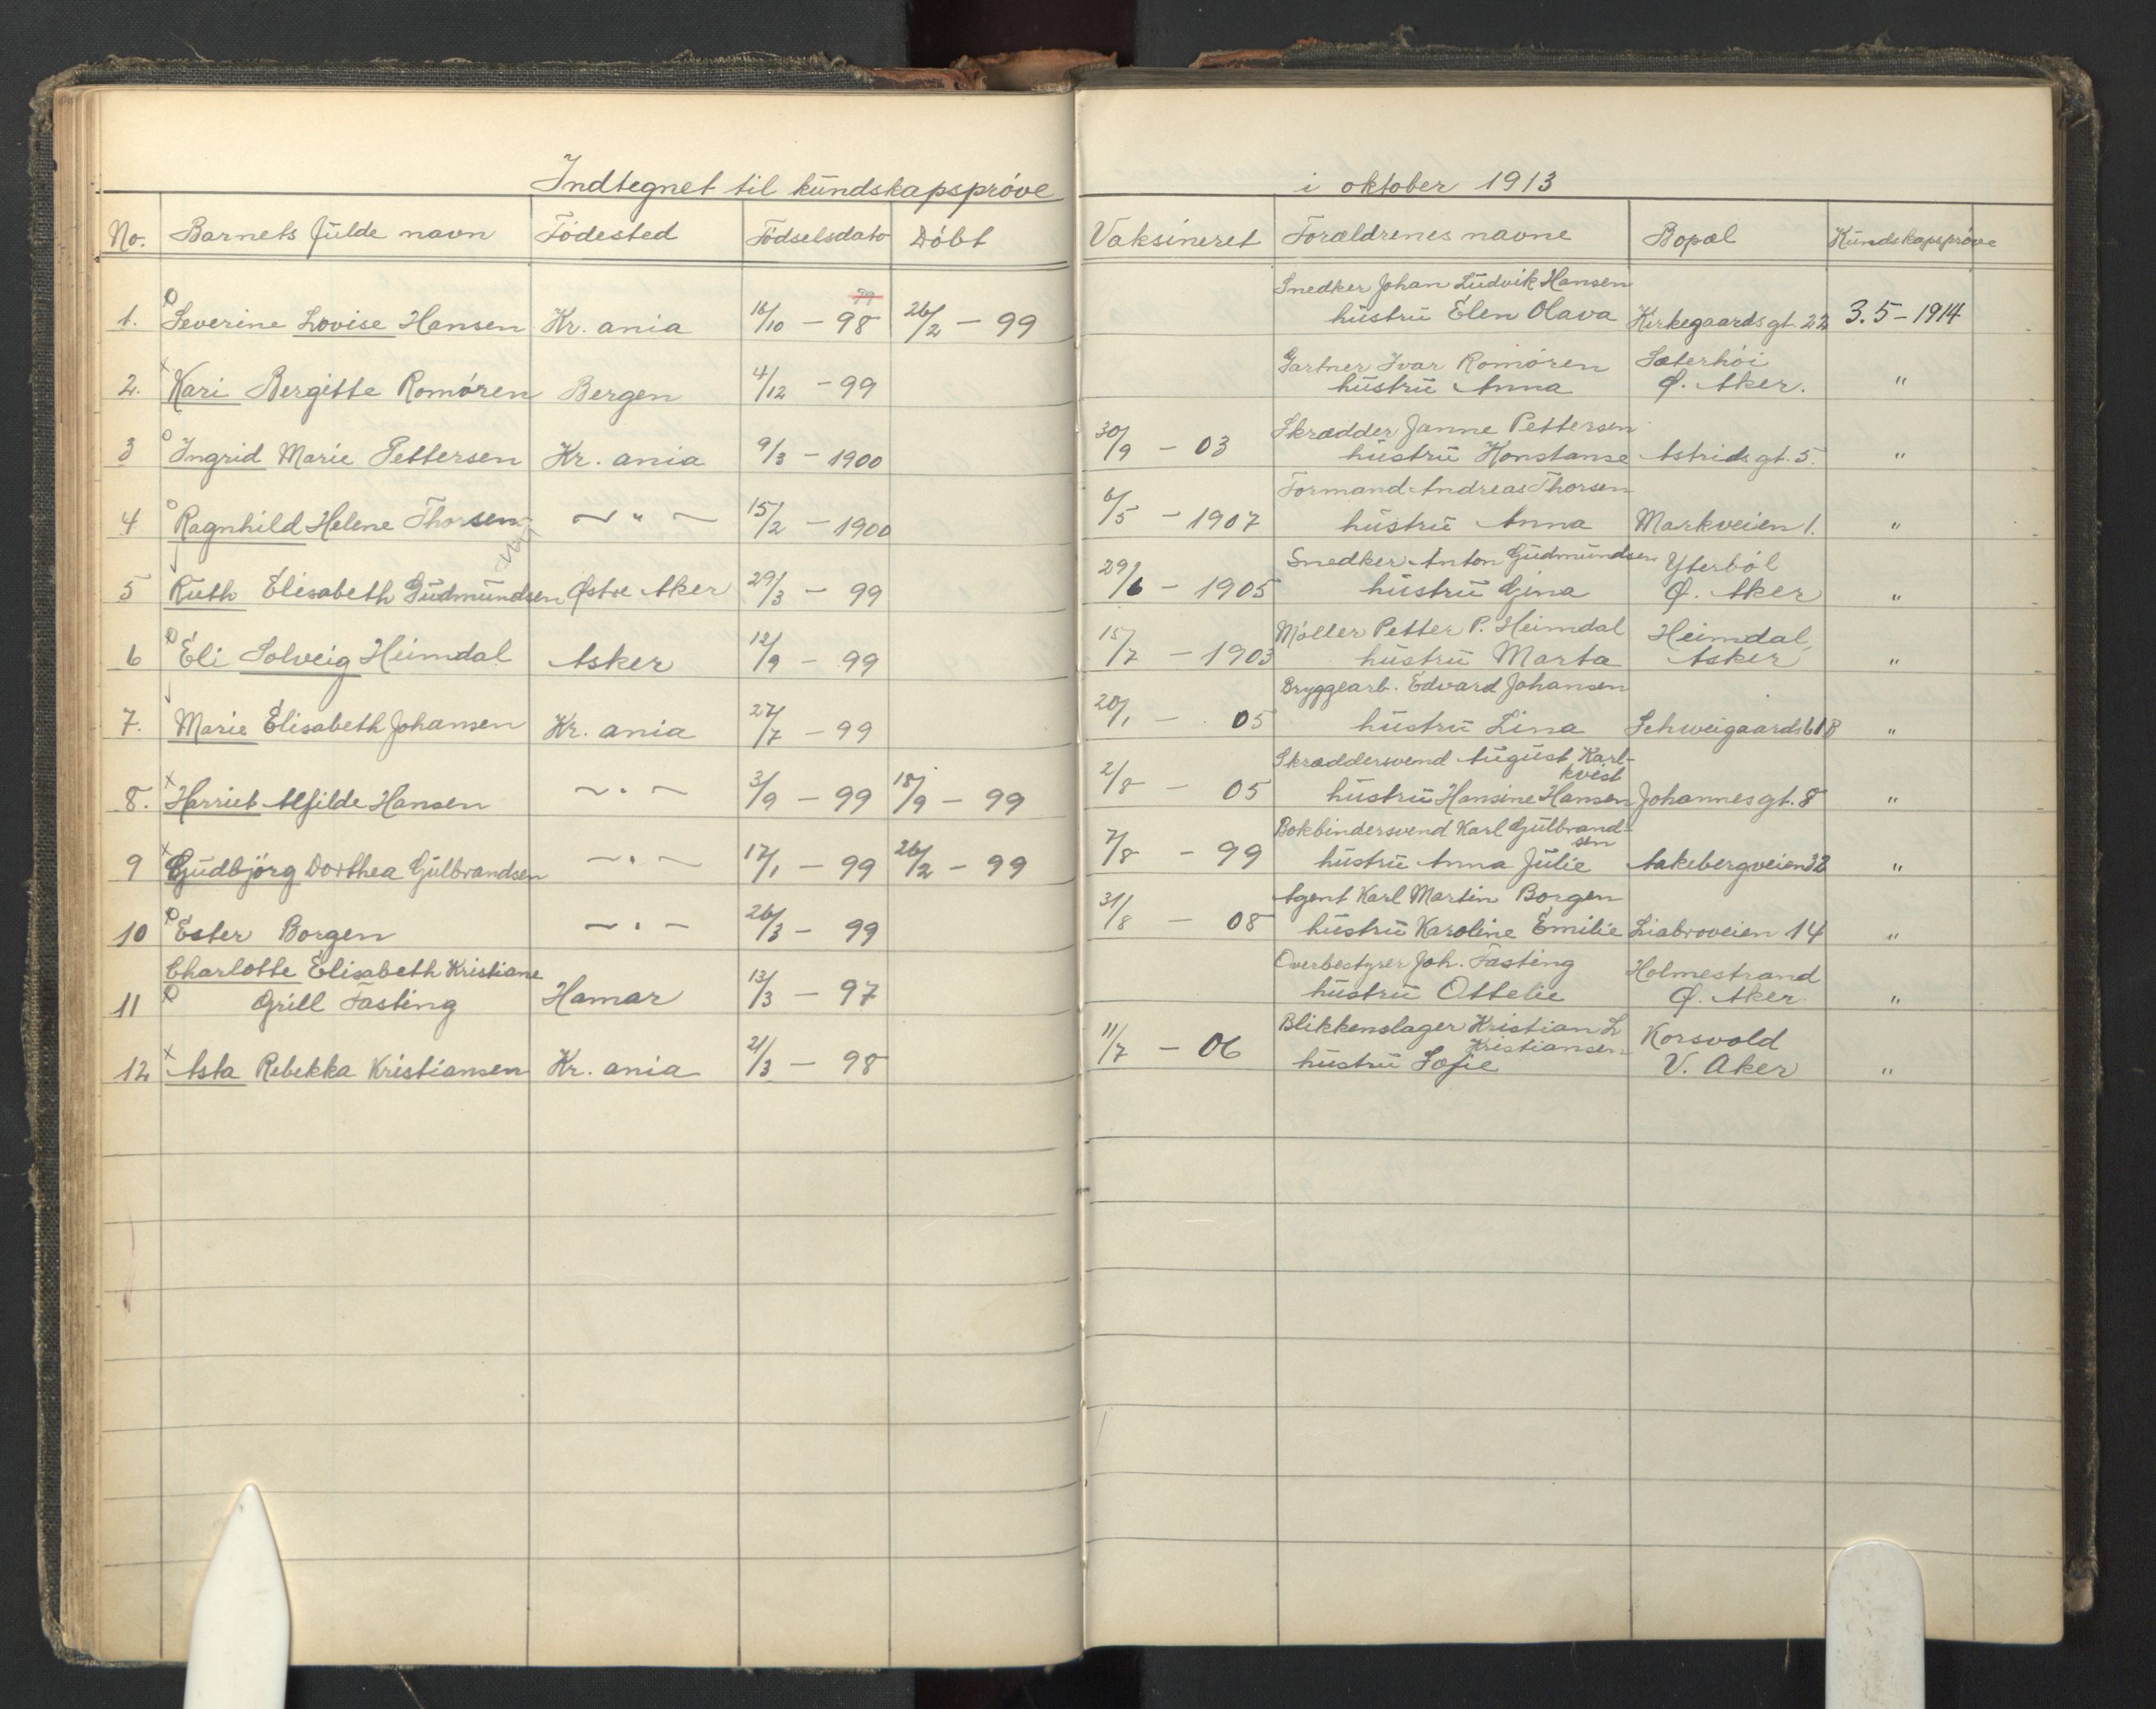 Indtegnet til kundskapsprøve i oktober 1913
No. Barnets fulde navn Födested Födselsdato Döbt Vaksineret Forældrenes navne Bopæl Kundskapsprøve
99
Snedker Johan Ludvik Hansen
1. Severine Lovise Hansen Kr. ania 16/10 - 98 26/2 - 99 hustru Elen Olava Kirkegaards gt. 22 3.5-1914
Gartner Ivar Romören Sæterhöi
2. Kari Bergitte Romören Bergen 4/12 - 99 hustru Anna Ø. Aker. "
Skrædder Janne Pettersen
3 Ingrid Marie Pettersen Kr. ania 9/3 - 1900 30/9 - 03 hustru Konstanse Astrids gt. 5. "
Formand Andreas Thorsen
4 Ragnhild Helene Thorsen ~ " ~ 15/2 - 1900 6/5 - 1907 hustru Anna Markveien 1. "
Snedker Anton Gudmundsen Yterböl
5 Ruth Elisabeth Gudmundsen Østre Aker 29/3 - 99 29/6 - 1905 hustru Gina Ø. Aker "
Møller Petter P. Heimdal Heimdal,
6 Eli Solveig Heimdal Asker 12/9 - 99 15/7 - 1903 hustru Marta Asker "
Bryggearb. Edvard Johansen
7. Marie Elisabeth Johansen Kr. ania 27/7 - 99 20/1 - 05 hustru Lina Schweigaards 61 B "
Skræddersvend August Karl-
kvist
8. Harriet Alfilde Hansen ~ " ~ 3/9 - 99 18/9 - 99 2/8 - 05 hustru Hansine Hansen Johannes gt. 8 "
Bokbindersvend Karl Gulbrand-
sen
9 Gudbjörg Dorthea Gulbrandsen ~ " ~ 17/1 - 99 26/2 - 99 7/8 - 99 hustru Anna Julie Aakebergveien 32 "
Agent Karl Martin Borgen
10 Ester Borgen ~ " ~ 26/3 - 99 31/8 - 08 hustru Karoline Emilie Liabroveien 14 "
Charlotte Elisabeth Kristiane Overbestyrer Joh. Fasting Holmestrand
11 Grill Fasting Hamar 13/3 - 97 hustru Ottelie Ø. Aker "
Blikkenslager Kristian L Korsvold
Kristiansen
12 Asta Rebekka Kristiansen Kr. ania 21/3 - 98 11/7 - 06 hustru Sofie V. Aker "